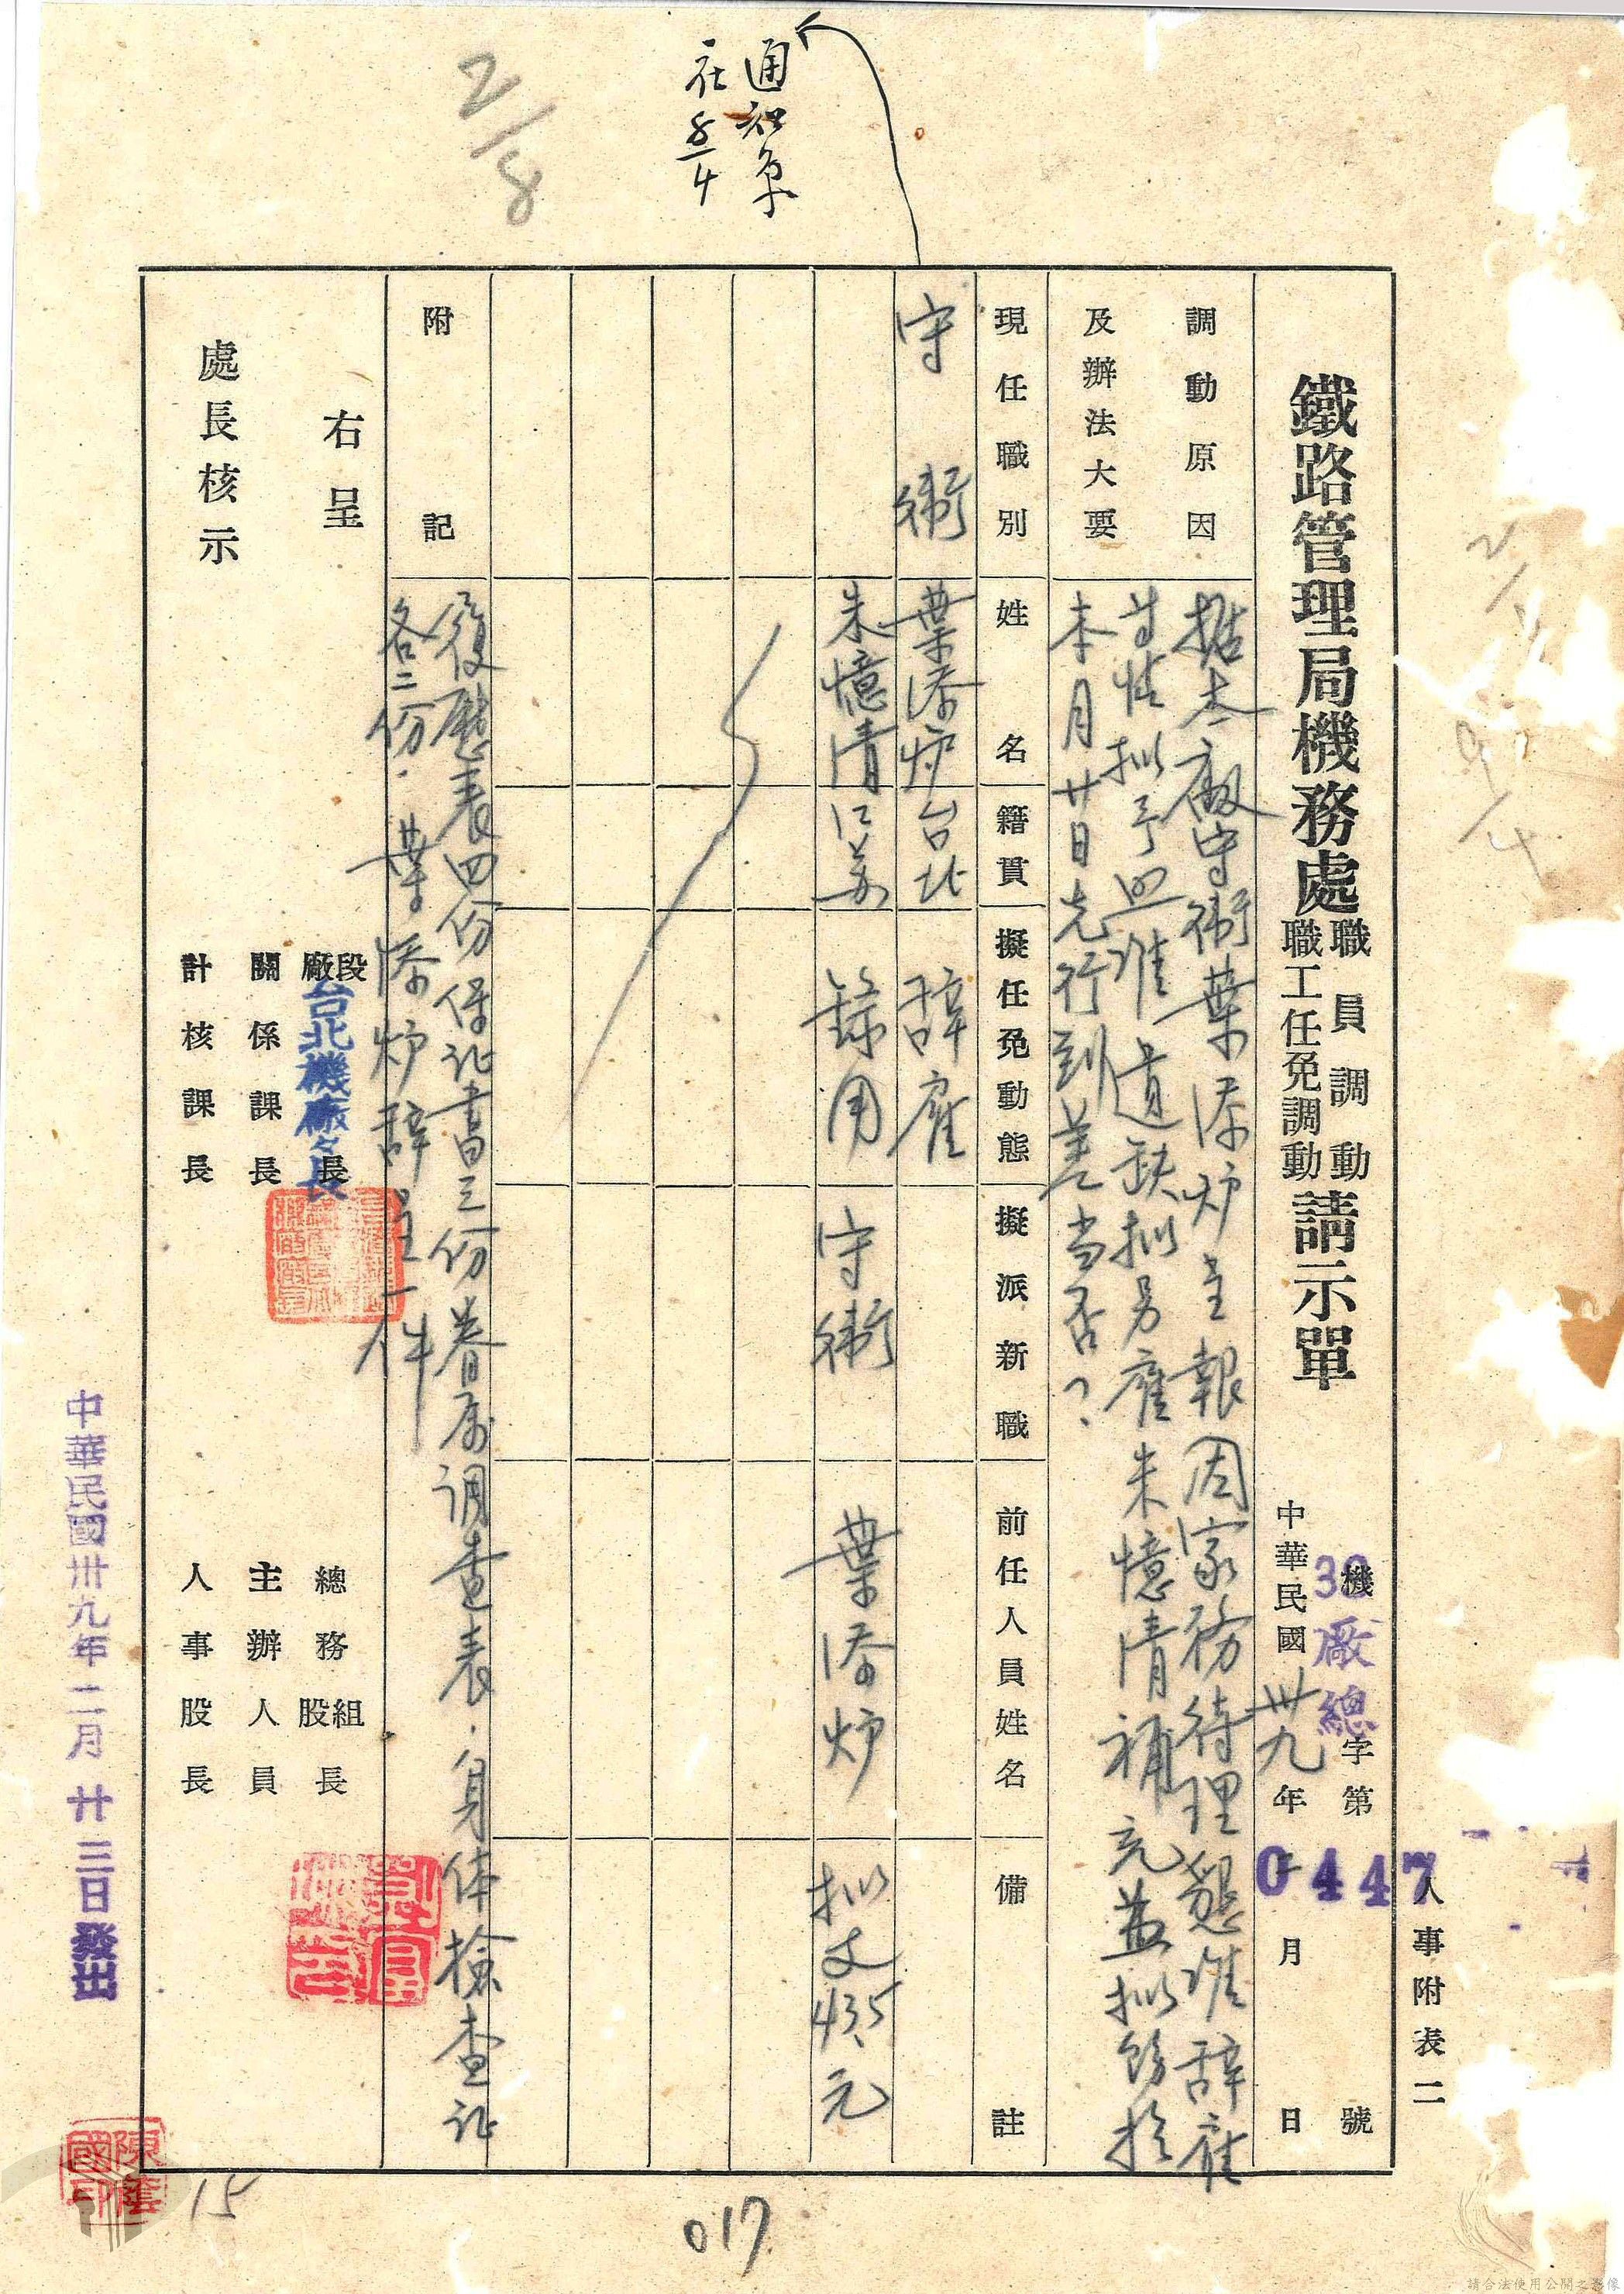 人事附表二
鐵路管理局機務處
職員調動
職工任免調動
請示單
機
39廠總
字第
0447
號
中華民國卅九年二月 日
調動原因
及辦法大要
據本廠守衛葉添炉呈報因家務待理懇准辞雇
等情擬予照准遺缺拟另雇朱憶清補充並拟飭於
本月廿日先行到差当否?
現任職別
姓名
籍貫
擬任免動態
擬派新職
前任人員姓名
備註
守衛
葉添炉
台北
辞雇
朱憶清
江苏
錄用
守衛
葉添炉
拟支435元
附記
履歷表四份保証書三份眷屬调查表.身体檢查証
各二份.葉添炉辞呈一件
右呈
處長核示
段
廠
長
台北機廠々長
關係課長
計核課長
總務
組
股
長
主辦人員
人事股長
中華民國卅九年二月廿三日發出
通知
8/4
2/8
15
017
請合法使用公開之影像